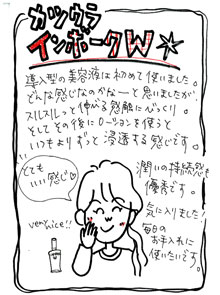 カツウラ
インボークW
導入型の美容液は初めて使いました。
どんな感じなのかなーと思いましたが
スルスルっと伸がる感触にびっくり。
そしてその後にローションを使うと
いつもよりずっと浸透する感じです。
潤いの持続感も
優秀です。
気に入りました！
毎日の
お手入れに
使いたいです。
とても
いい感じ♡
very nice!!